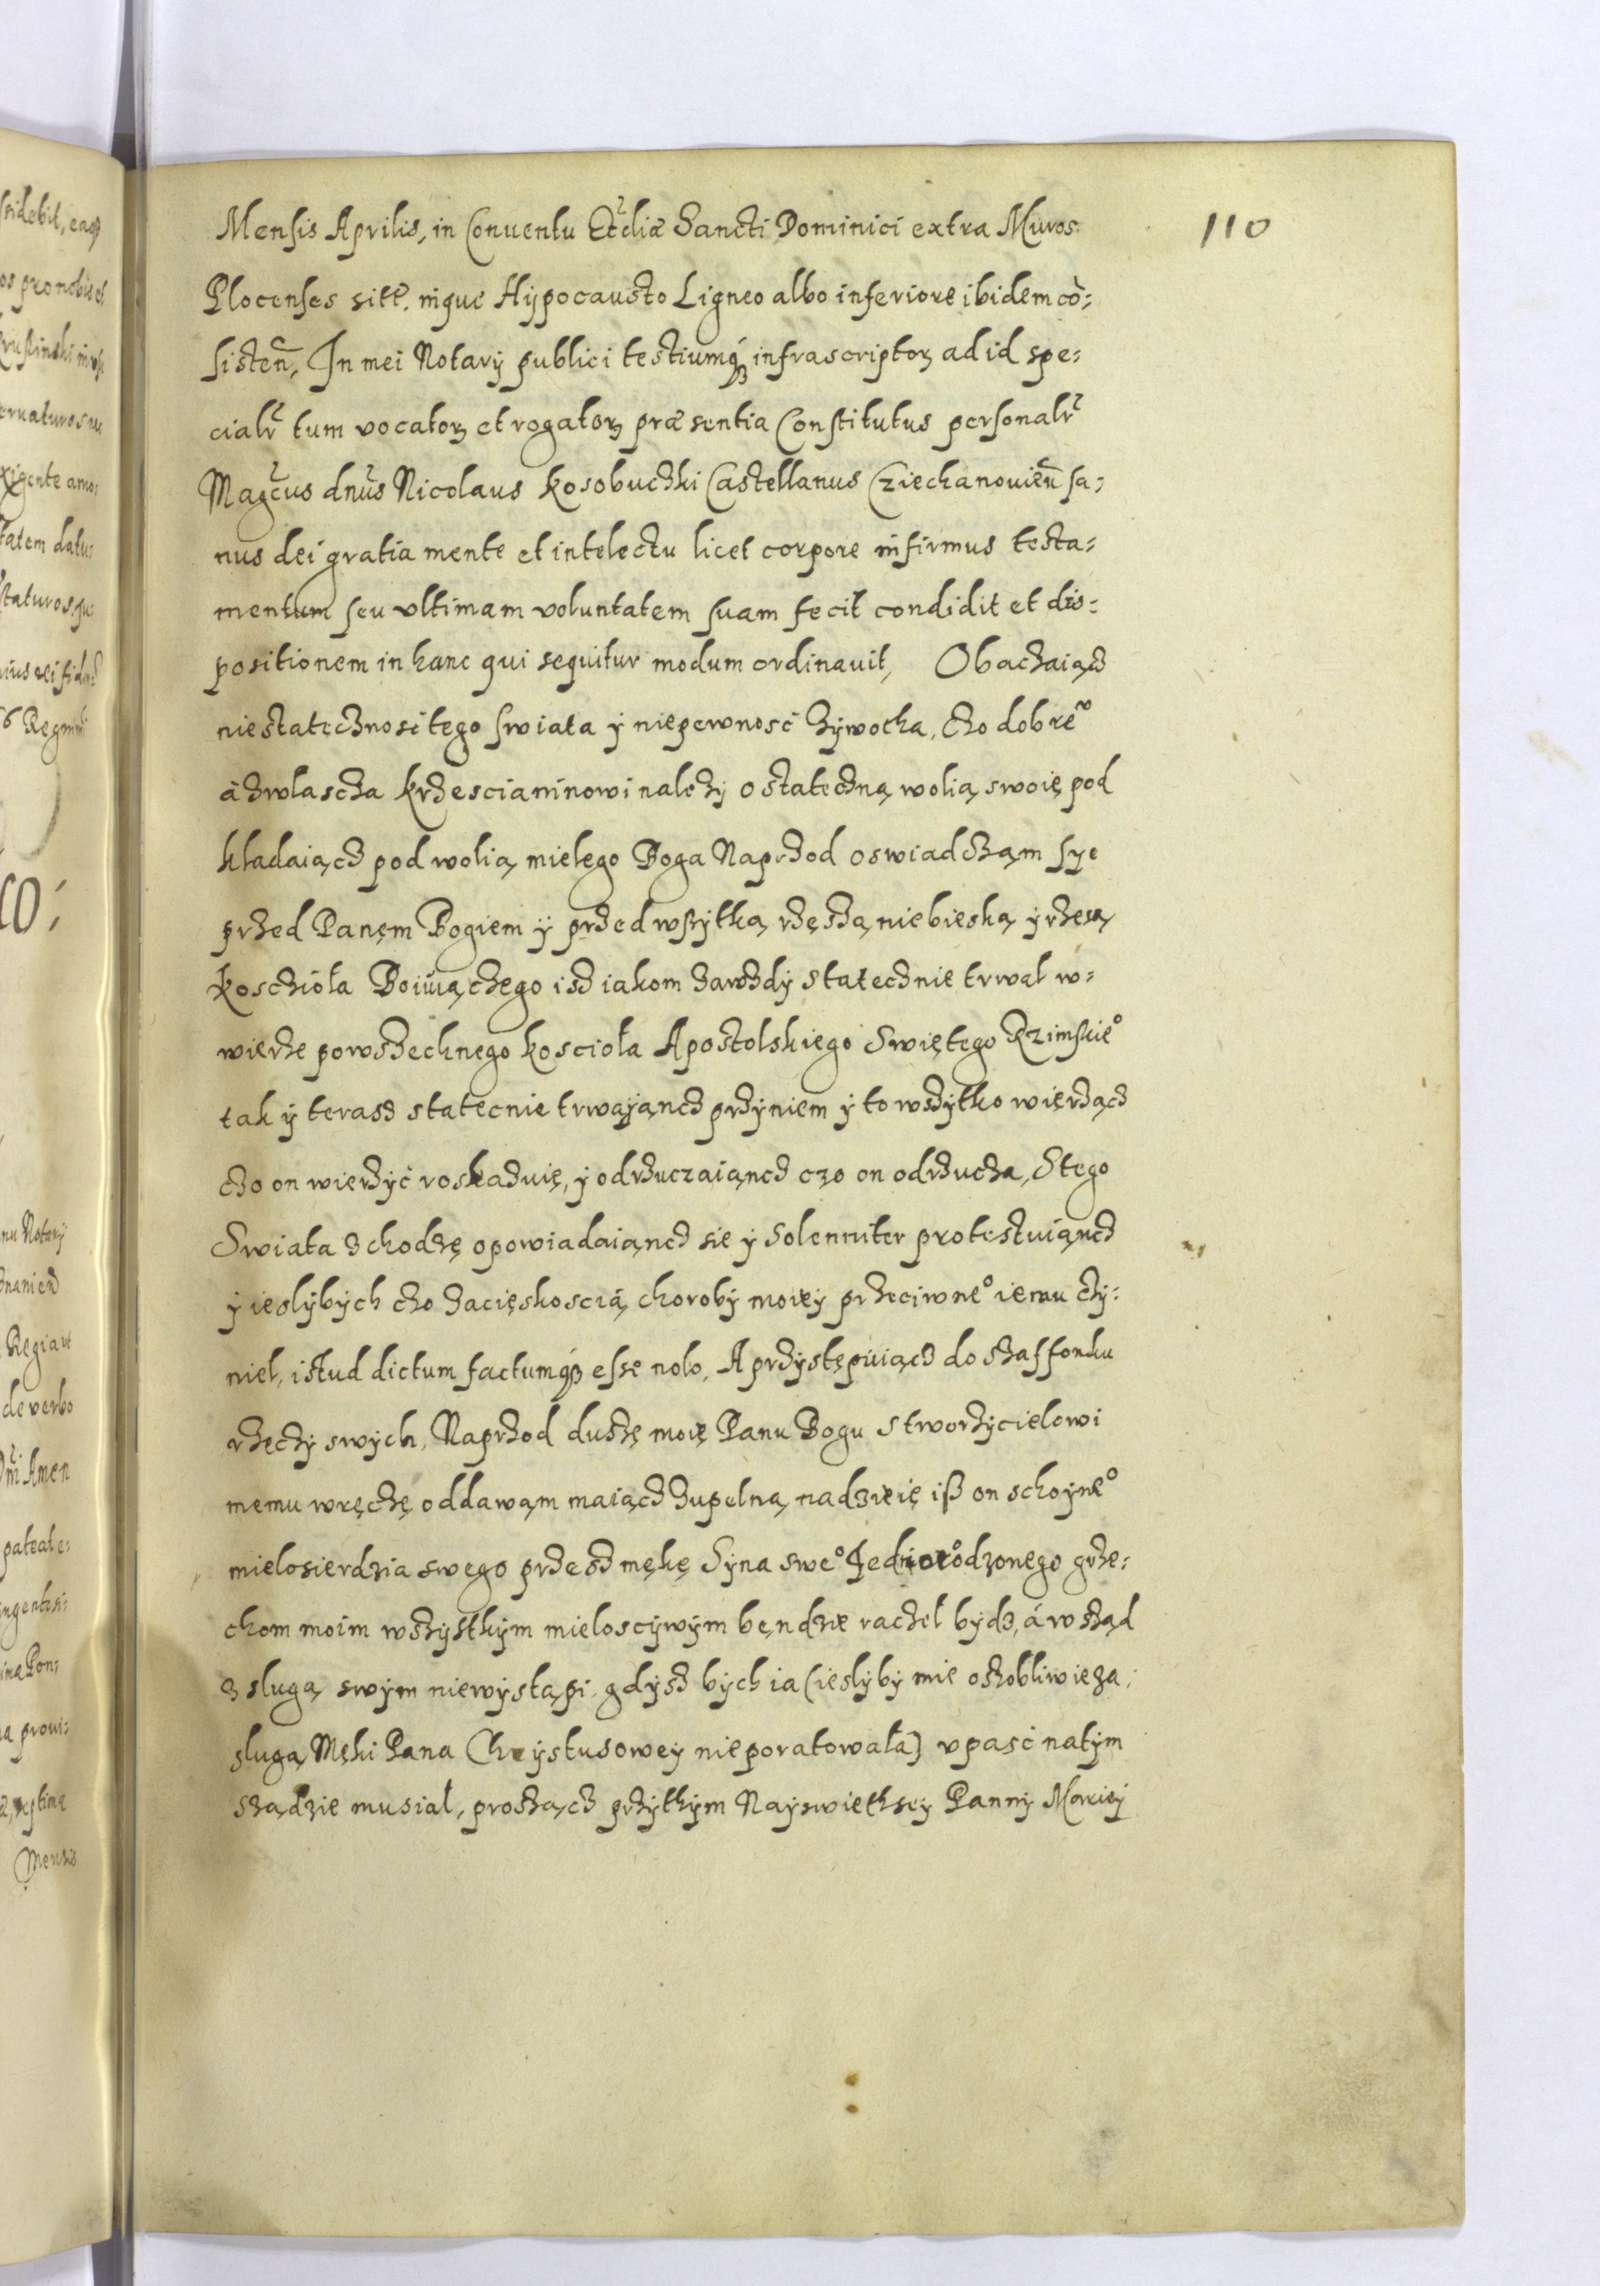 110
Mensis Aprilis, in Conuentu Eccliæ Sancti Dominici extra Muros
Plocenses site. inque Hypocausto Ligneo albo inferiore ibidem cō:
sisteñ, In mei Notary publici testiumq́ꝫ infrascriptoꝝ ad id spe:
cialr̃ tum vocatoꝝ et rogatoꝝ præsentia Constitutus personalr̃
Magc̃us dnũs Nicolaus Kosobuczki Castellanus Cziechanouieñ sa:
nus dei gratia mente et intelectu licet corpore infirmus testa:
mentum seu vltimam voluntatem suam fecit condidit et dis:
positionem in hanc qui sequitur modum ordinauit, Obaczaiącz
niestatecznosc tego swiata ÿ niepewnosć zÿwotha, czo dobre͞º
à zwlascza krzescianinowi należÿ ostateczną wolią swoię pod
kładaiącz pod wolią mielego Boga Naprzod oswiadczam sye
przed Panęm Bogiem ÿ przed wszÿtką rzęszą niebieską ÿ rzeszą
Koscziola Boiuiączego isz iakom zawzdÿ statecznie trwał w:
wierze powszechnego koscioła Apostolskiego Swiętego Rzimskieº
tak ÿ terasz statecnie trwająncz przÿniem ÿ to wszÿtko wierząc
czo on wierzÿć roskazuię, ÿ odrzuczaiąncz czo on odrzucza, Stego
Swiata zchodzę opowiadaiąncz sie ÿ Solenniter protestuiąncz
ÿ ieslÿbÿch czo zacięskoscią chorobÿ moieÿ przeciwneº iemu czÿ:
niel, istud dictum factumq́ꝫ esse nolo, A przÿstępuiącz do szaffonku
rzęczÿ swÿch, Naprzod duszę moię Panu Bogu Stworzÿcielowi
memu wręczę oddawam maiącz zupelną nadzieię iß on schoÿneº
mielosierdzia swego przesz mękę Sÿna sweº Jednorodzonego grze:
chom moim wszÿstkÿm mieloscÿwÿm bęndzie raczel bÿdz, á wsząd
z slugą swÿm niewÿstąpi, gdÿsz bÿch ia (ieslÿbÿ mie oszobliwie za:
sługa Męki Pana Chrÿstusoweÿ nieporatowała) vpasć natÿm
sządzie musiał, prosząch przÿtkÿm Naÿswiethseÿ Pannÿ Marieÿ